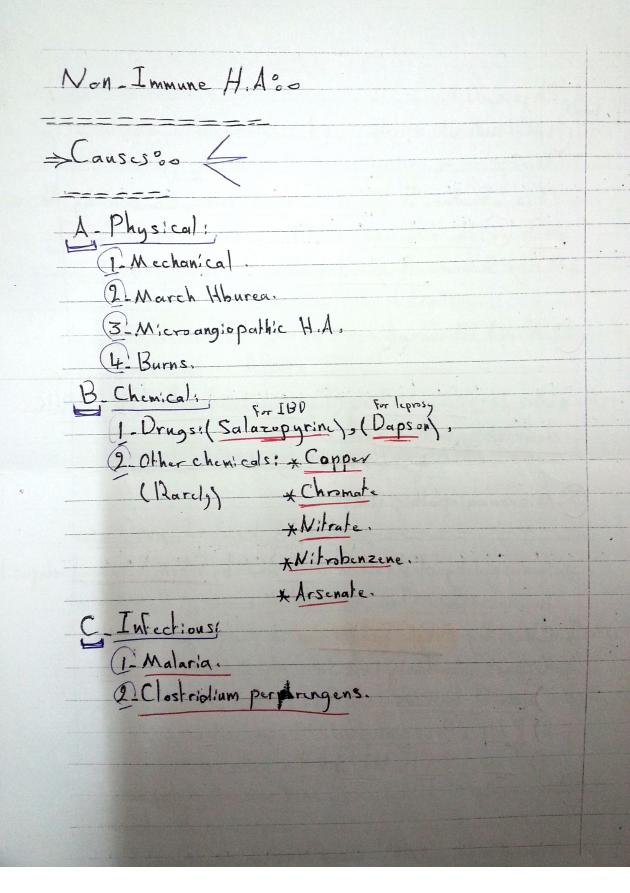 Non-Immune H.A:
⇒Causes:
A- Physical:
1- Mechanical.
2- March Hburea.
3- Microangiopathic H.A.
4- Burns.
B- Chemical:
For IBD For leprosy
1- Drugs: (Salazopyrine), (Dapson),
2- Other chemicals: * Copper
(Rarely) * Chromate
* Nitrate.
* Nitrobenzene.
* Arsenate.
C- Infectious:
1- Malaria.
2- Clostridium perfrengens.